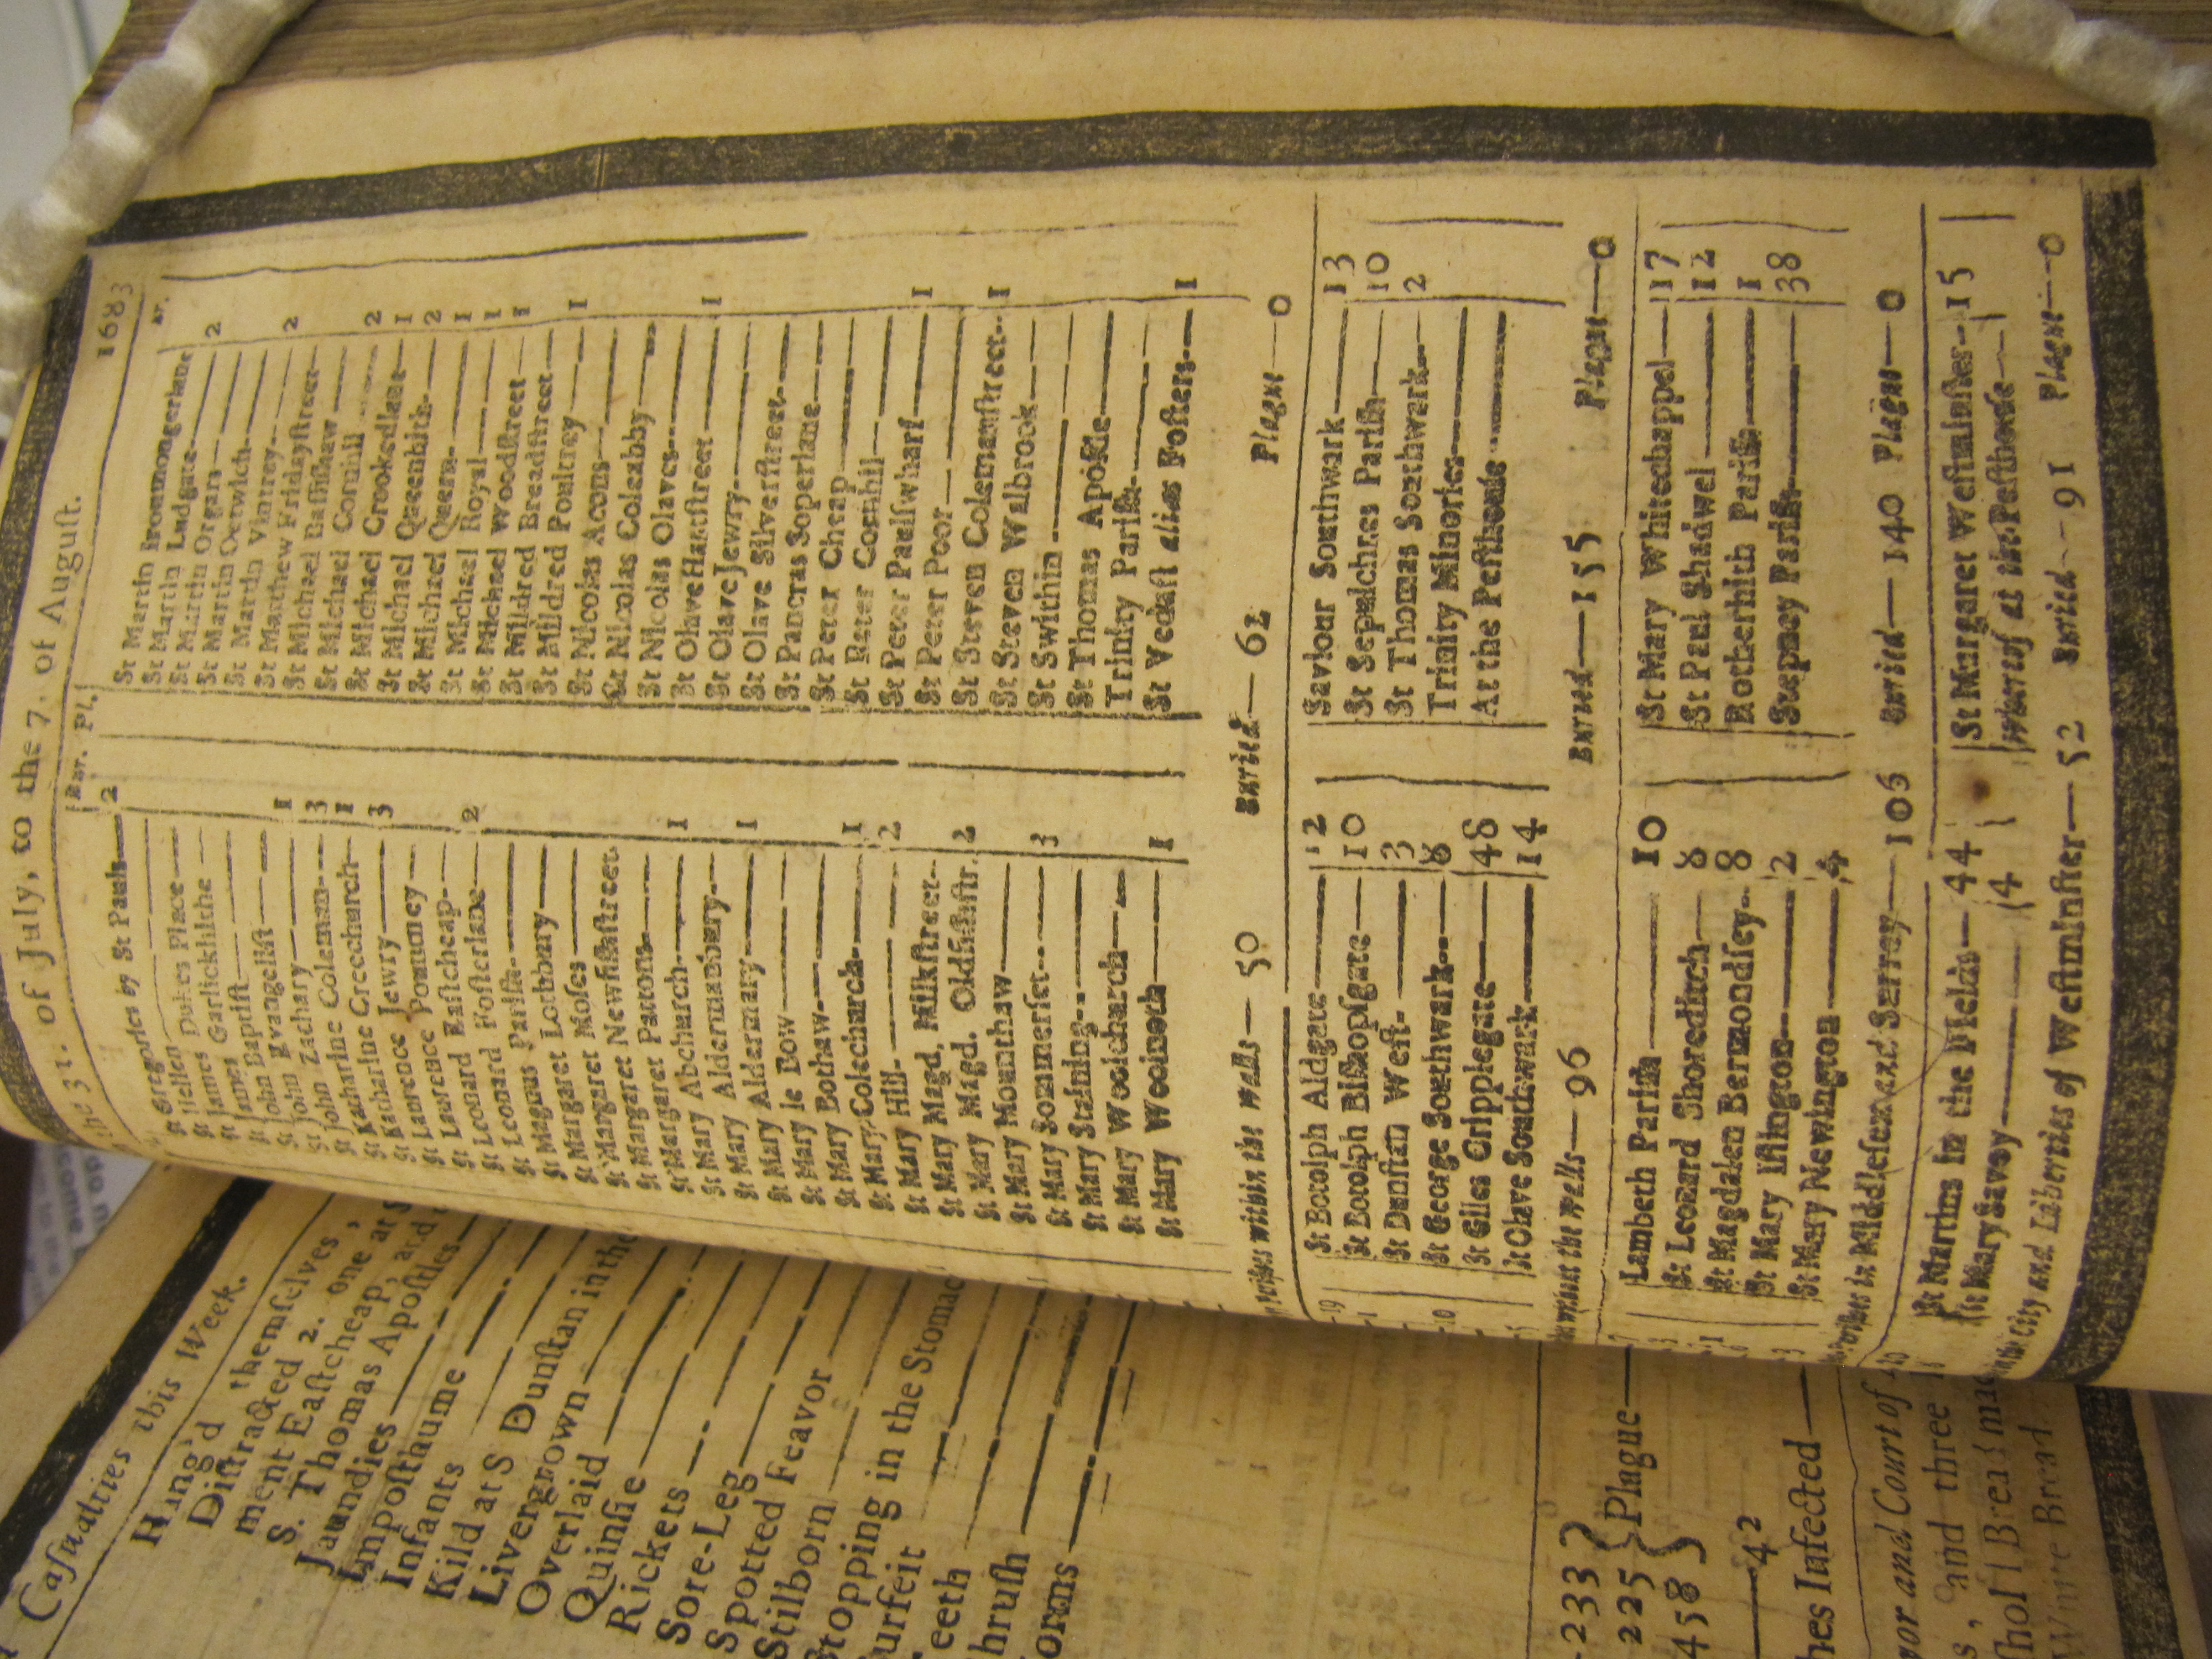 the 31. of July, to the 7. of August. 1683
Bur. Pl.
St Gregories by St Pauls — 2
St Hellen
St James Dukes Place
St James Garlickhithe
St John Baptist
St John Evangelist
St John Zachary — 1
St Katharine Coleman — 3
St Katharine Creechurch — 1
St Lawrence Jewry — 3
St Lawrence Pountney
St Leonard Eastcheap
St Leonard Fosterlane — 2
St Magnus Parish
St Margaret Lothbury
St Margaret Moses
St Margaret Newfishstreet
St Margaret Pattons
St Mary Abchurch — 1
St Mary Aldermanbury
St Mary Aldermary — 1
St Mary le Bow
St Mary Bothaw
St Mary Colechurch — 1
St Mary Hill — 2
St Mary Magd. Milkstreet
St Mary Magd. Oldfishstr. 2
St Mary Mounthaw
St Mary Sommerset — 3
St Mary Staining
St Mary Woolchurch
St Mary Woolnoth — 1
St Martin Ironmongerlane
St Martin Ludgate — 2
St Martin Orgars
St Martin Outwich
St Martin Vintrey
St Matthew Fridaystreet
St Michael Bassishaw
St Michael Cornhill
St Michael Crookedlane
St Michael Queenhith
St Michael Quern
St Michael Royal
St Michael Woodstreet
St Mildred Breadstreet
St Mildred Poultrey
St Nicolas Acons
St Nicolas Coleabby
St Nicolas Olaves
St Olave Hartstreet — 1
St Olave Jewry
St Olave Silverstreet
St Pancras Soperlane
St Peter Cheap
St Peter Cornhil
St Peter Paulswharf — 1
St Peter Poor
St Steven Colemanstreet — 1
St Steven Walbrook
St Swithin
St Thomas Apostle
Trinity Parish
St Vedast alias Fosters — 1
Parishes within the walls — 50 Buried — 62 Plague — 0
St Botolph Aldgate — 12
St Botolph Bishopsgate — 10
St Dunstan West — 3
St George Southwark — 8
St Giles Cripplegate — 48
St Olave Southwark — 14
Saviour Southwark — 13
St Sepulchres Parish — 10
St Thomas Southwark — 2
Trinity Minories
At the Pesthouse
without the walls — 96 Buried — 155 Plague — 0
Lambeth Parish — 10
St Leonard Shoreditch — 8
St Magdalen Bermondsey — 8
St Mary Islington — 2
St Mary Newington — 4
St Mary Whitechappel — 17
St Paul Shadwel — 12
Rotherhith Parish — 1
Stepney Parish — 38
in Middlesex and Surrey — 106 Buried — 140 Plague — 0
St Martins in the Fields — 44
St Mary Savoy — 4
St Margaret Westminster — 15
Whereof at the Pesthouse
in the City and Liberties of Westminster — 52 Buried — 91 Plague — 0
Casualties this Week.
Hang'd themselves,
Distracted 2. one at
ment Eastcheap, and
S. Thomas Apostles
Jaundies
Imposthume
Infants
Kild at S Dunstan in the
Livergrown
Overlaid
Quinsie
Rickets
Sore-Leg
Spotted Feavor
Stilborn
Stopping in the Stomac
urfeit
eeth
hrush
orms
233
225 Plague
458
42
hes Infected
yor and Court of
s, and three
Brea